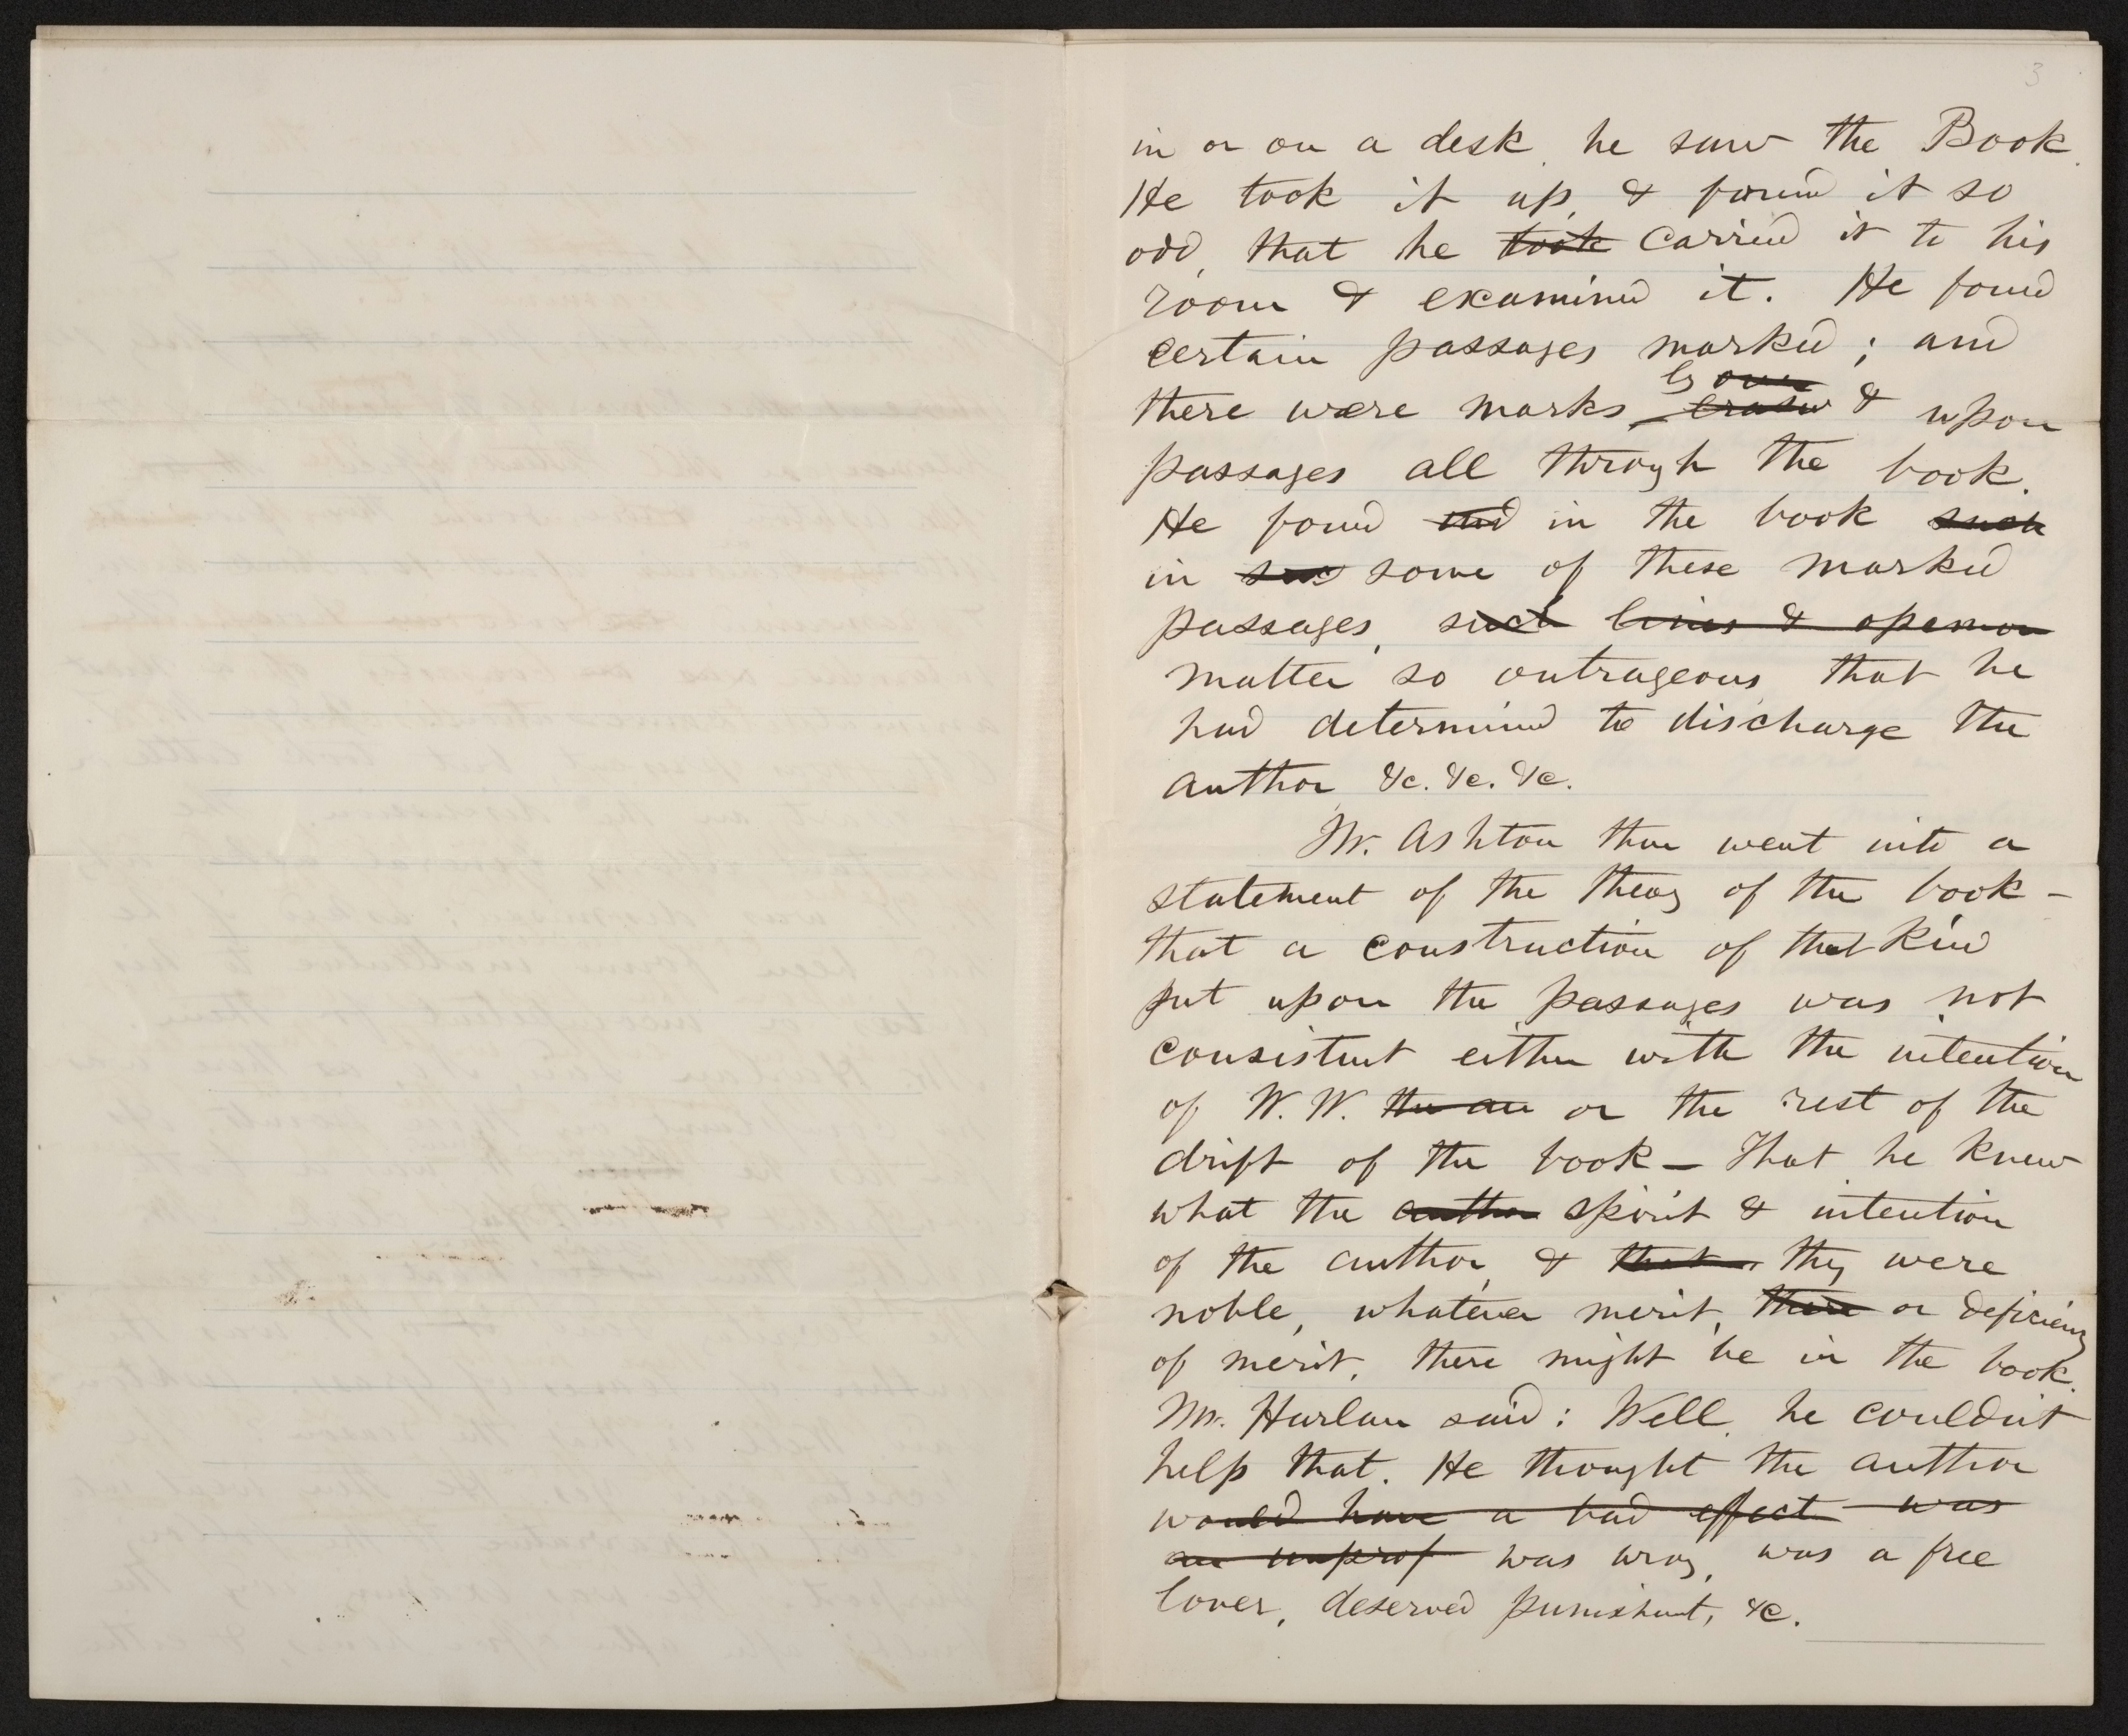 3
in or on a desk, he saw the Book.
He took it up, & found it so
odd, that he took carried it to his
room & examined it. He found
certain passages marked; and
by over
there were marks & upon
passages all through the book.
He found and in the book such
in some of these marked
passages, such lines & opinion
matter so outrageous that he
had determined to discharge the
author &c. &c. &c.
Mr. Ashton then went into a
statement of the theory of the book –
that a construction of that kind
put upon the passages was not
consistent either with the intention
of W. W. the au or the rest of the
drift of the book – That he knew
what the author spirit & intention
of the author, & that they were
noble, whatever merit, there or deficiency
of merit, there might be in the book.
Mr. Harlan said: Well, he couldn't
help that. He thought the author
would have a bad effect was
an improp was wrong, was a free
lover, deserved punishment, &c.